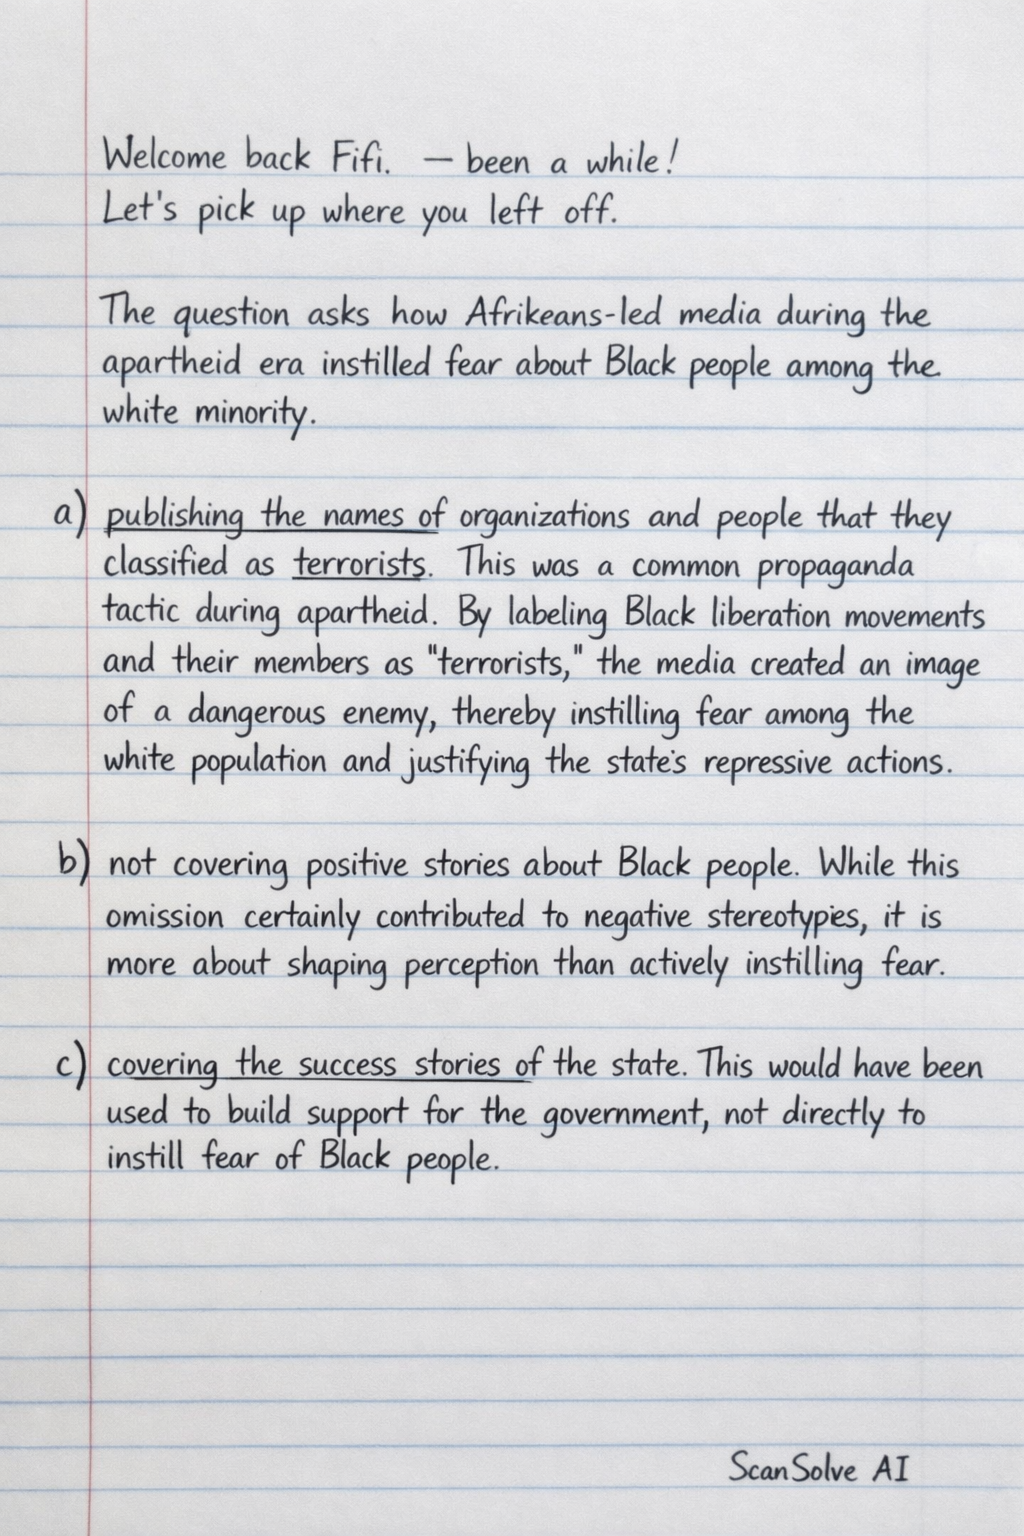 Welcome back Fifi. — been a while!
Let's pick up where you left off.
The question asks how Afrikeans-led media during the
apartheid era instilled fear about Black people among the
white minority.
a) publishing the names of organizations and people that they
classified as terrorists. This was a common propaganda
tactic during apartheid. By labeling Black liberation movements
and their members as "terrorists," the media created an image
of a dangerous enemy, thereby instilling fear among the
white population and justifying the state's repressive actions.
b) not covering positive stories about Black people. While this
omission certainly contributed to negative stereotypes, it is
more about shaping perception than actively instilling fear.
c) covering the success stories of the state. This would have been
used to build support for the government, not directly to
instill fear of Black people.
ScanSolve AI